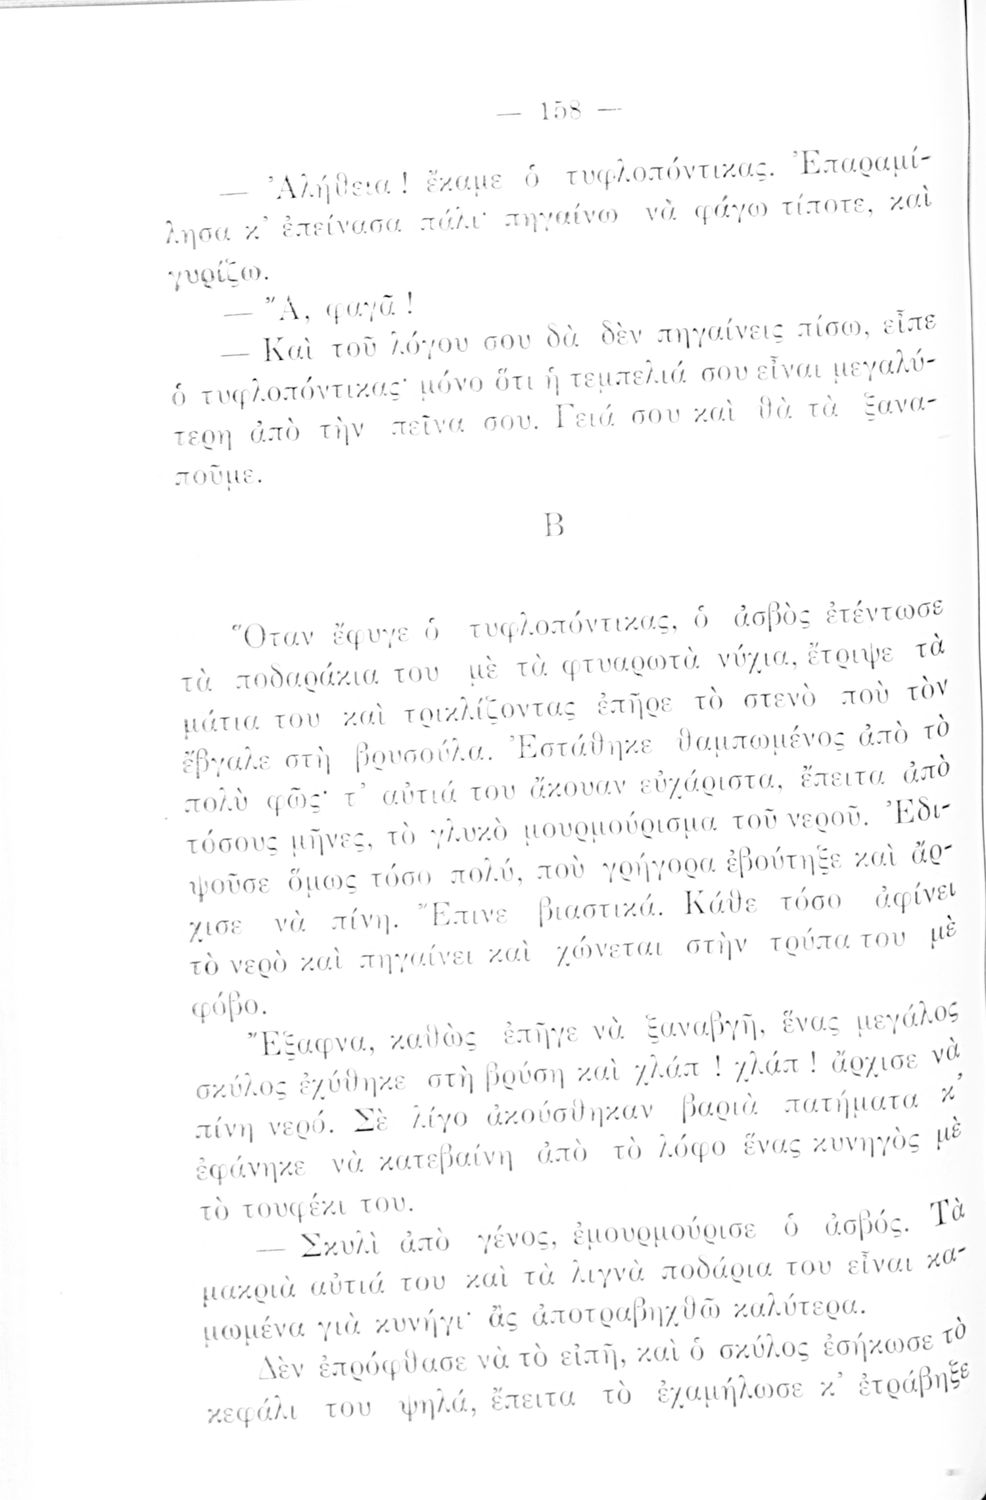 — 158 —
— Ἀλήθεια! ἔκαμε ὁ τυφλοπόντικας. Ἐπαραμί-
λησα κ’ ἐπείνασα πάλι· πηγαίνω νὰ φάγω τίποτε, καὶ
γυρίζω.
— Ἄ, φαγᾶ!
— Καὶ τοῦ λόγου σου δὰ δὲν πηγαίνεις πίσω, εἶπε
ὁ τυφλοπόντικας· μόνο ὅτι ἡ τεμπελιά σου εἶναι μεγαλύ-
τερη ἀπὸ τὴν πεῖνα σου. Γειά σου καὶ θὰ τὰ ξανα-
ποῦμε.
Β
Ὅταν ἔφυγε ὁ τυφλοπόντικας, ὁ ἀσβὸς ἐτέντωσε
τὰ ποδαράκια του μὲ τὰ φτυαρωτὰ νύχια, ἔτριψε τὰ
μάτια του καὶ τρικλίζοντας ἐπῆρε τὸ στενὸ ποὺ τὸν
ἔβγαλε στὴ βρυσούλα. Ἐστάθηκε θαμπωμένος ἀπὸ τὸ
πολὺ φῶς· τ’ αὐτιά του ἄκουαν εὐχάριστα, ἔπειτα ἀπὸ
τόσους μῆνες, τὸ γλυκὸ μουρμούρισμα τοῦ νεροῦ. Ἐδι-
ψοῦσε ὅμως τόσο πολύ, ποὺ γρήγορα ἐβούτηξε καὶ ἄρ-
χισε νὰ πίνη. Ἔπινε βιαστικά. Κάθε τόσο ἀφίνει
τὸ νερὸ καὶ πηγαίνει καὶ χώνεται στὴν τρύπα του μὲ
φόβο.
Ἔξαφνα, καθὼς ἐπῆγε νὰ ξαναβγῆ, ἕνας μεγάλος
σκύλος ἐχύθηκε στὴ βρύση καὶ χλάπ! χλάπ! ἄρχισε νὰ
πίνη νερό. Σὲ λίγο ἀκούσθηκαν βαριὰ πατήματα κ’
ἐφάνηκε νὰ κατεβαίνη ἀπὸ τὸ λόφο ἕνας κυνηγὸς μὲ
τὸ τουφέκι του.
— Σκυλὶ ἀπὸ γένος, ἐμουρμούρισε ὁ ἀσβός. Τὰ
μακριὰ αὐτιά του καὶ τὰ λιγνὰ ποδάρια του εἶναι κα-
μωμένα γιὰ κυνήγι· ἂς ἀποτραβηχθῶ καλύτερα.
Δὲν ἐπρόφθασε νὰ τὸ εἰπῆ, καὶ ὁ σκύλος ἐσήκωσε τὸ
κεφάλι του ψηλά, ἔπειτα τὸ ἐχαμήλωσε κ’ ἐτράβηξε